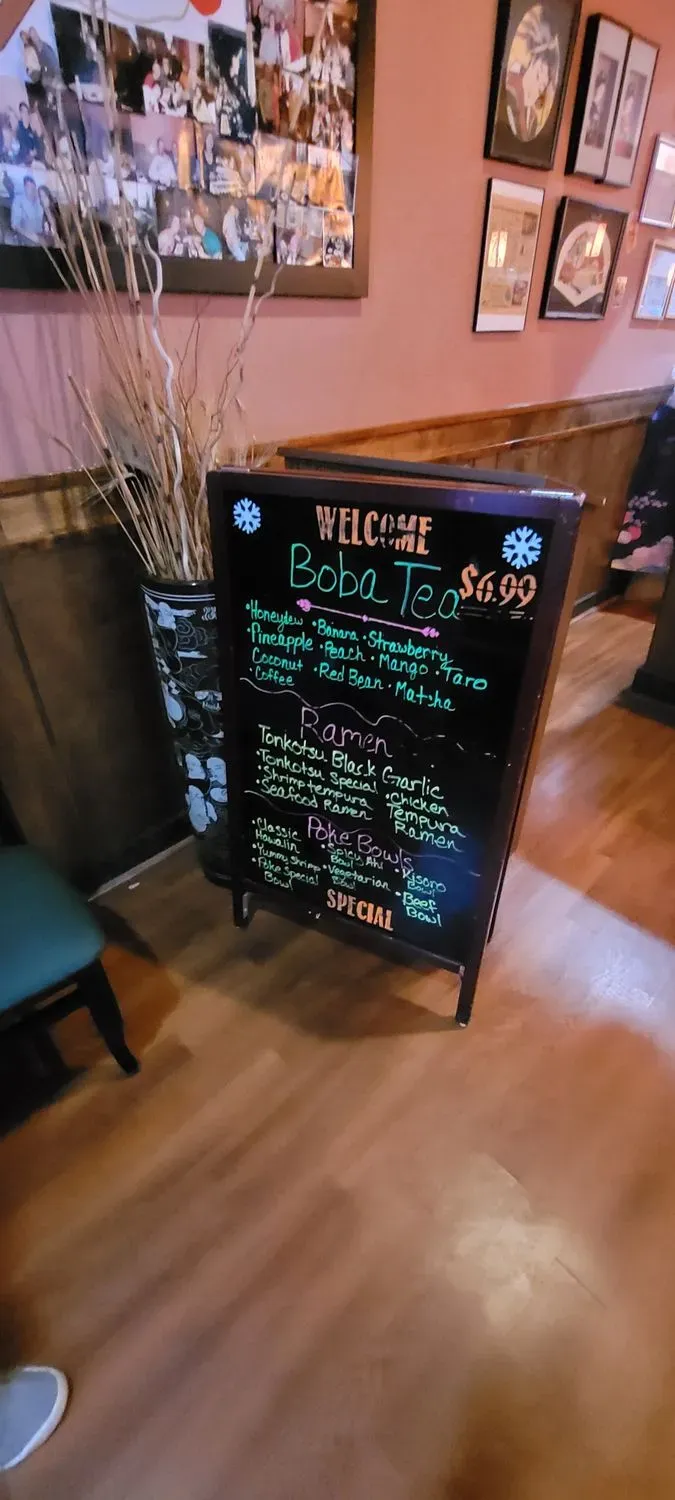 WELCOME
Boba Tea $6.99
•Honeydew •Banana •Strawberry
•Pineapple •Peach •Mango •Taro
Coconut •Red Bean •Matcha
•Coffee
Ramen
Tonkotsu Black Garlic
•Tonkotsu Special •Chicken
•Shrimp tempura Tempura
Seafood Ramen Ramen
Poke Bowls
•Classic •Spicy Ahi •Kisoro
Hawaiin Bowl Bowl
•Yummy Shrimp •Vegetarian •Beef
•Poke Special Bowl Bowl
Bowl
SPECIAL